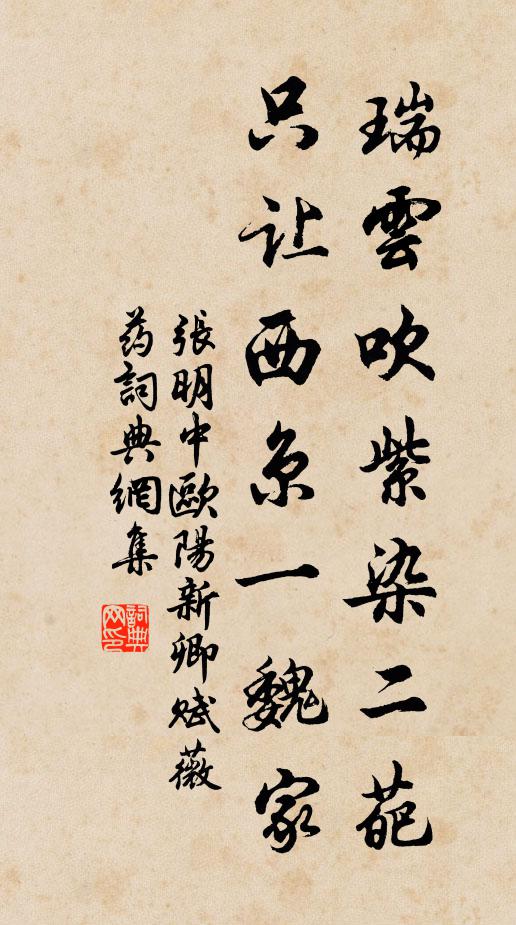 瑞雲吹紫染二葩
只让西京一魏家
張明中歐陽新卿赋薇
药詞典網集
詞典网印